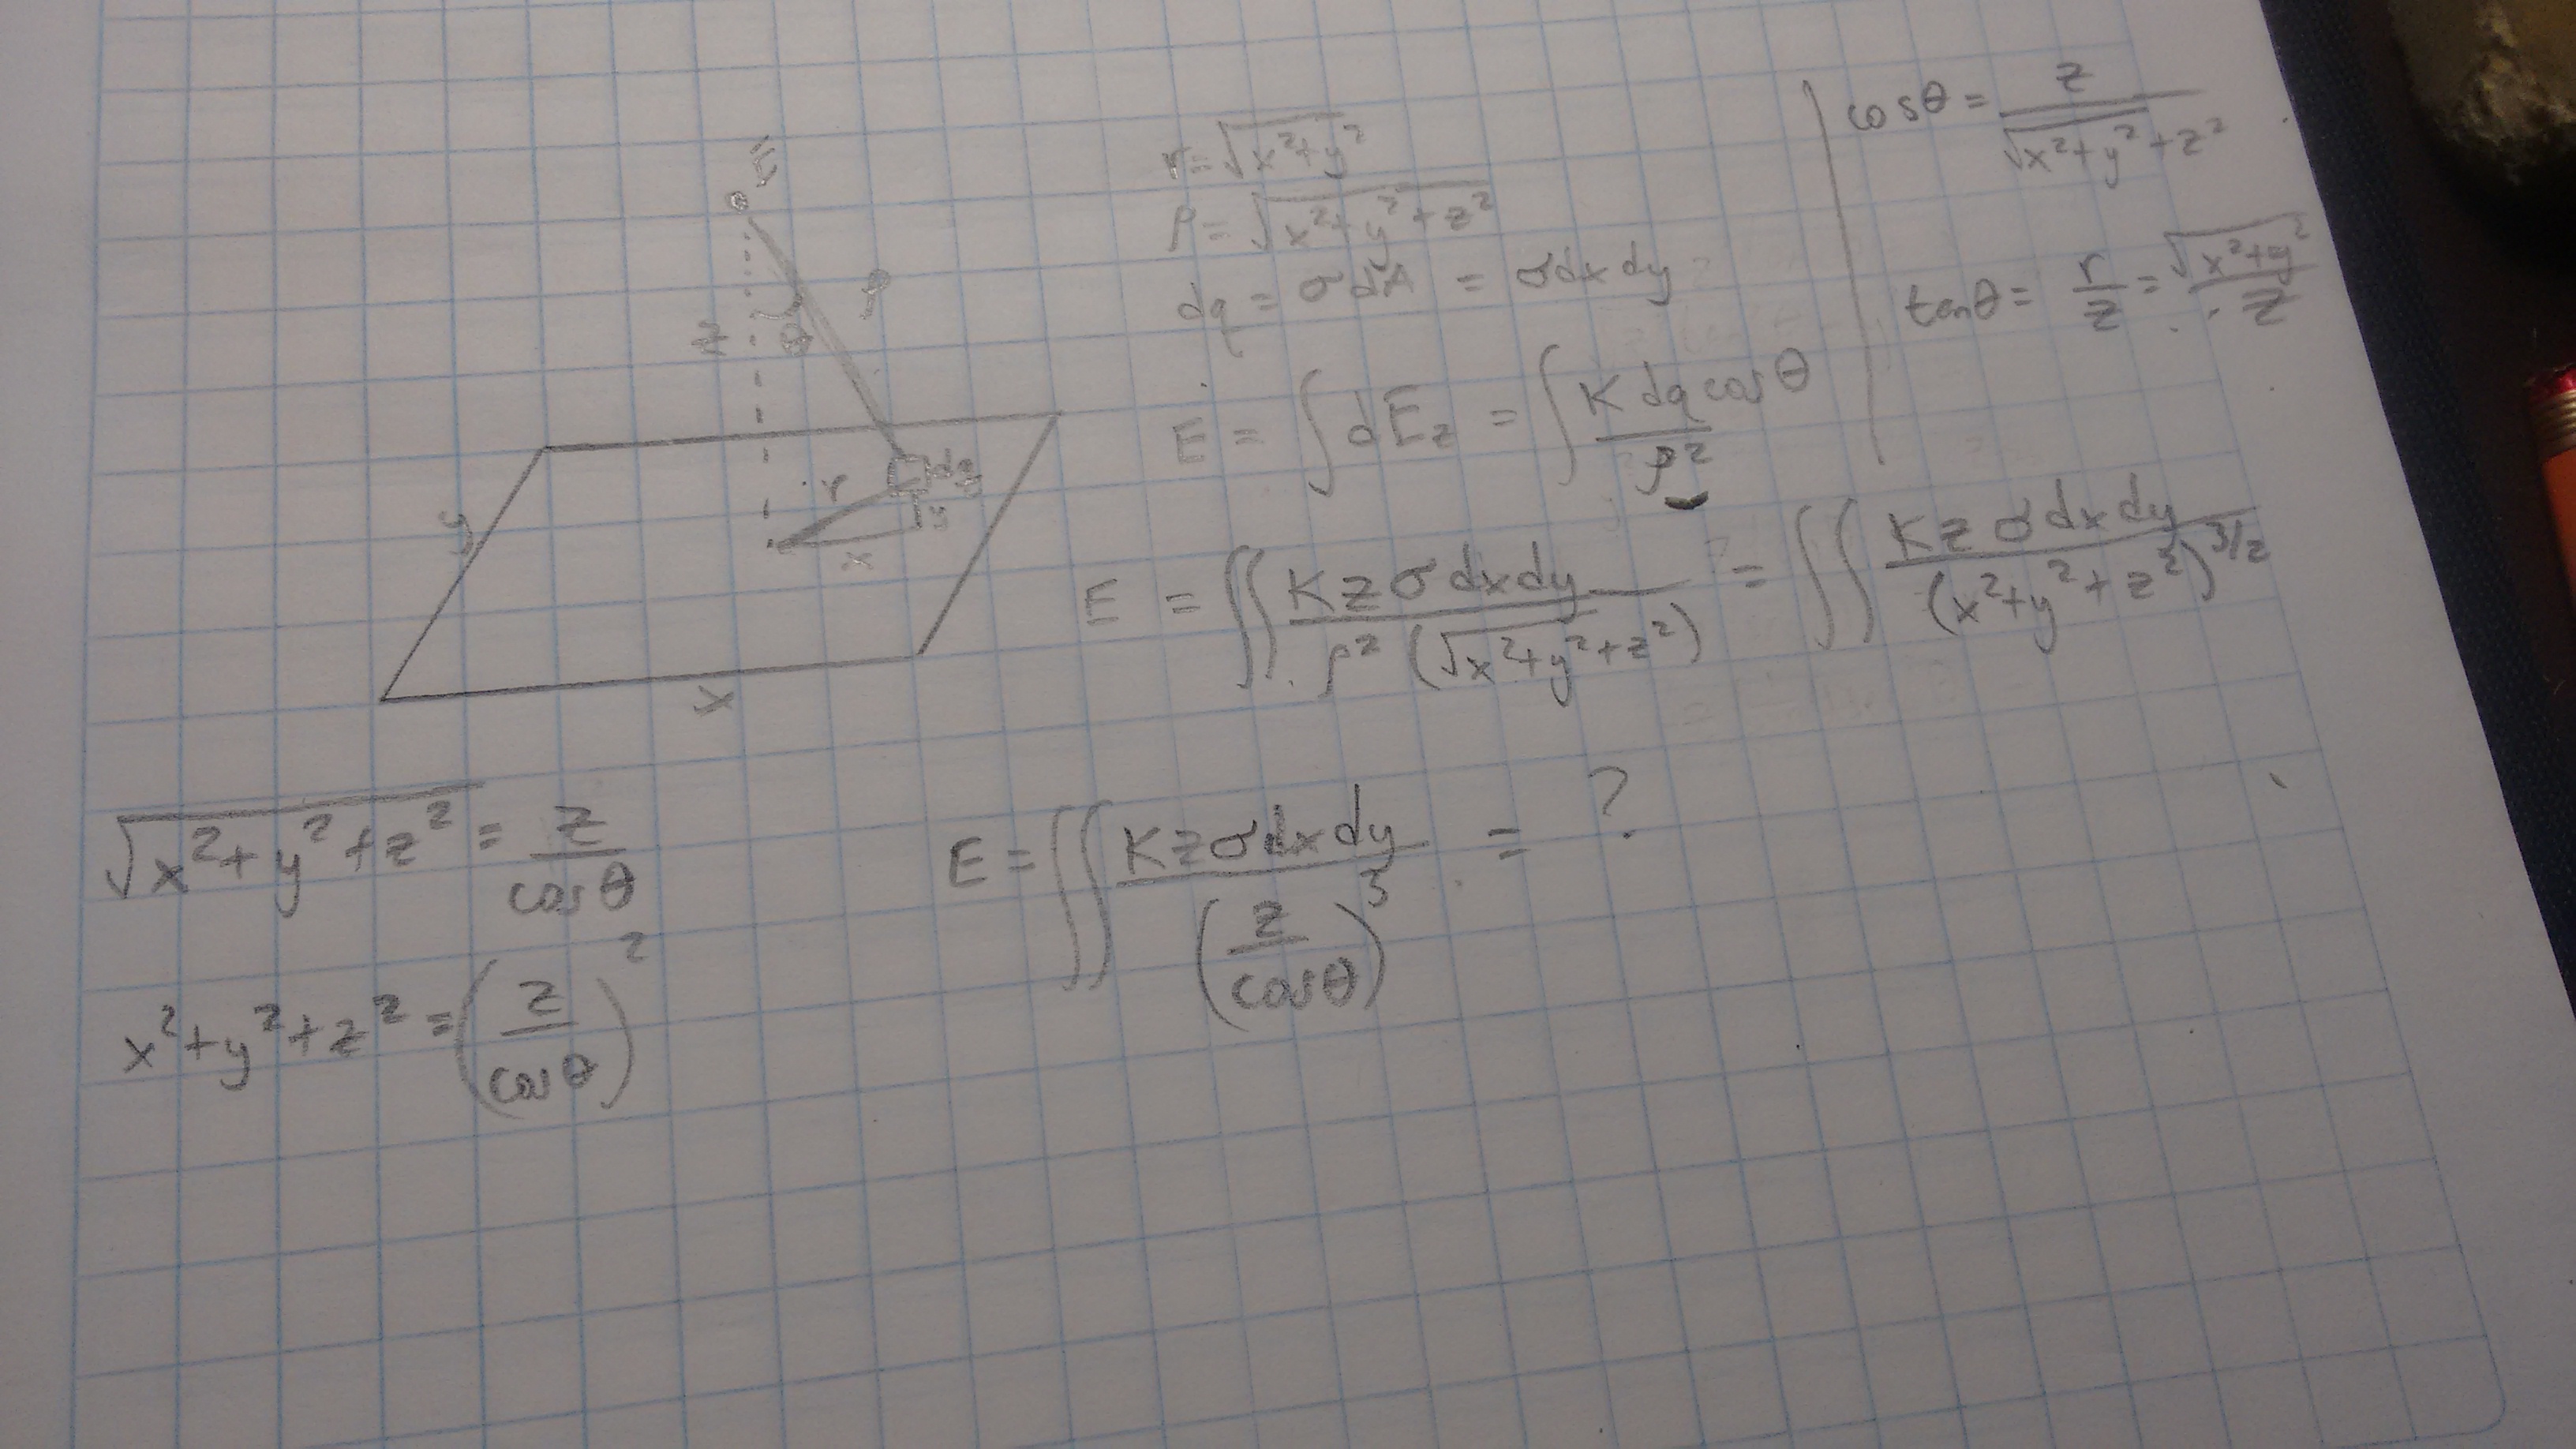 E
z θ ρ
r dq
y x y
x
r = √x²+y²
ρ = √x²+y²+z²
dq = σ dA = σ dx dy
E = ∫ dE_z = ∫ K dq cos θ / ρ²
cos θ = z / √x²+y²+z²
tan θ = r/z = √x²+y² / z
E = ∬ K z σ dx dy / ρ² (√x²+y²+z²) = ∬ K z σ dx dy / (x²+y²+z²)^3/2
√x²+y²+z² = z / cos θ
E = ∬ K z σ dx dy / (z / cos θ)³ = ?
x²+y²+z² = (z / cos θ)²